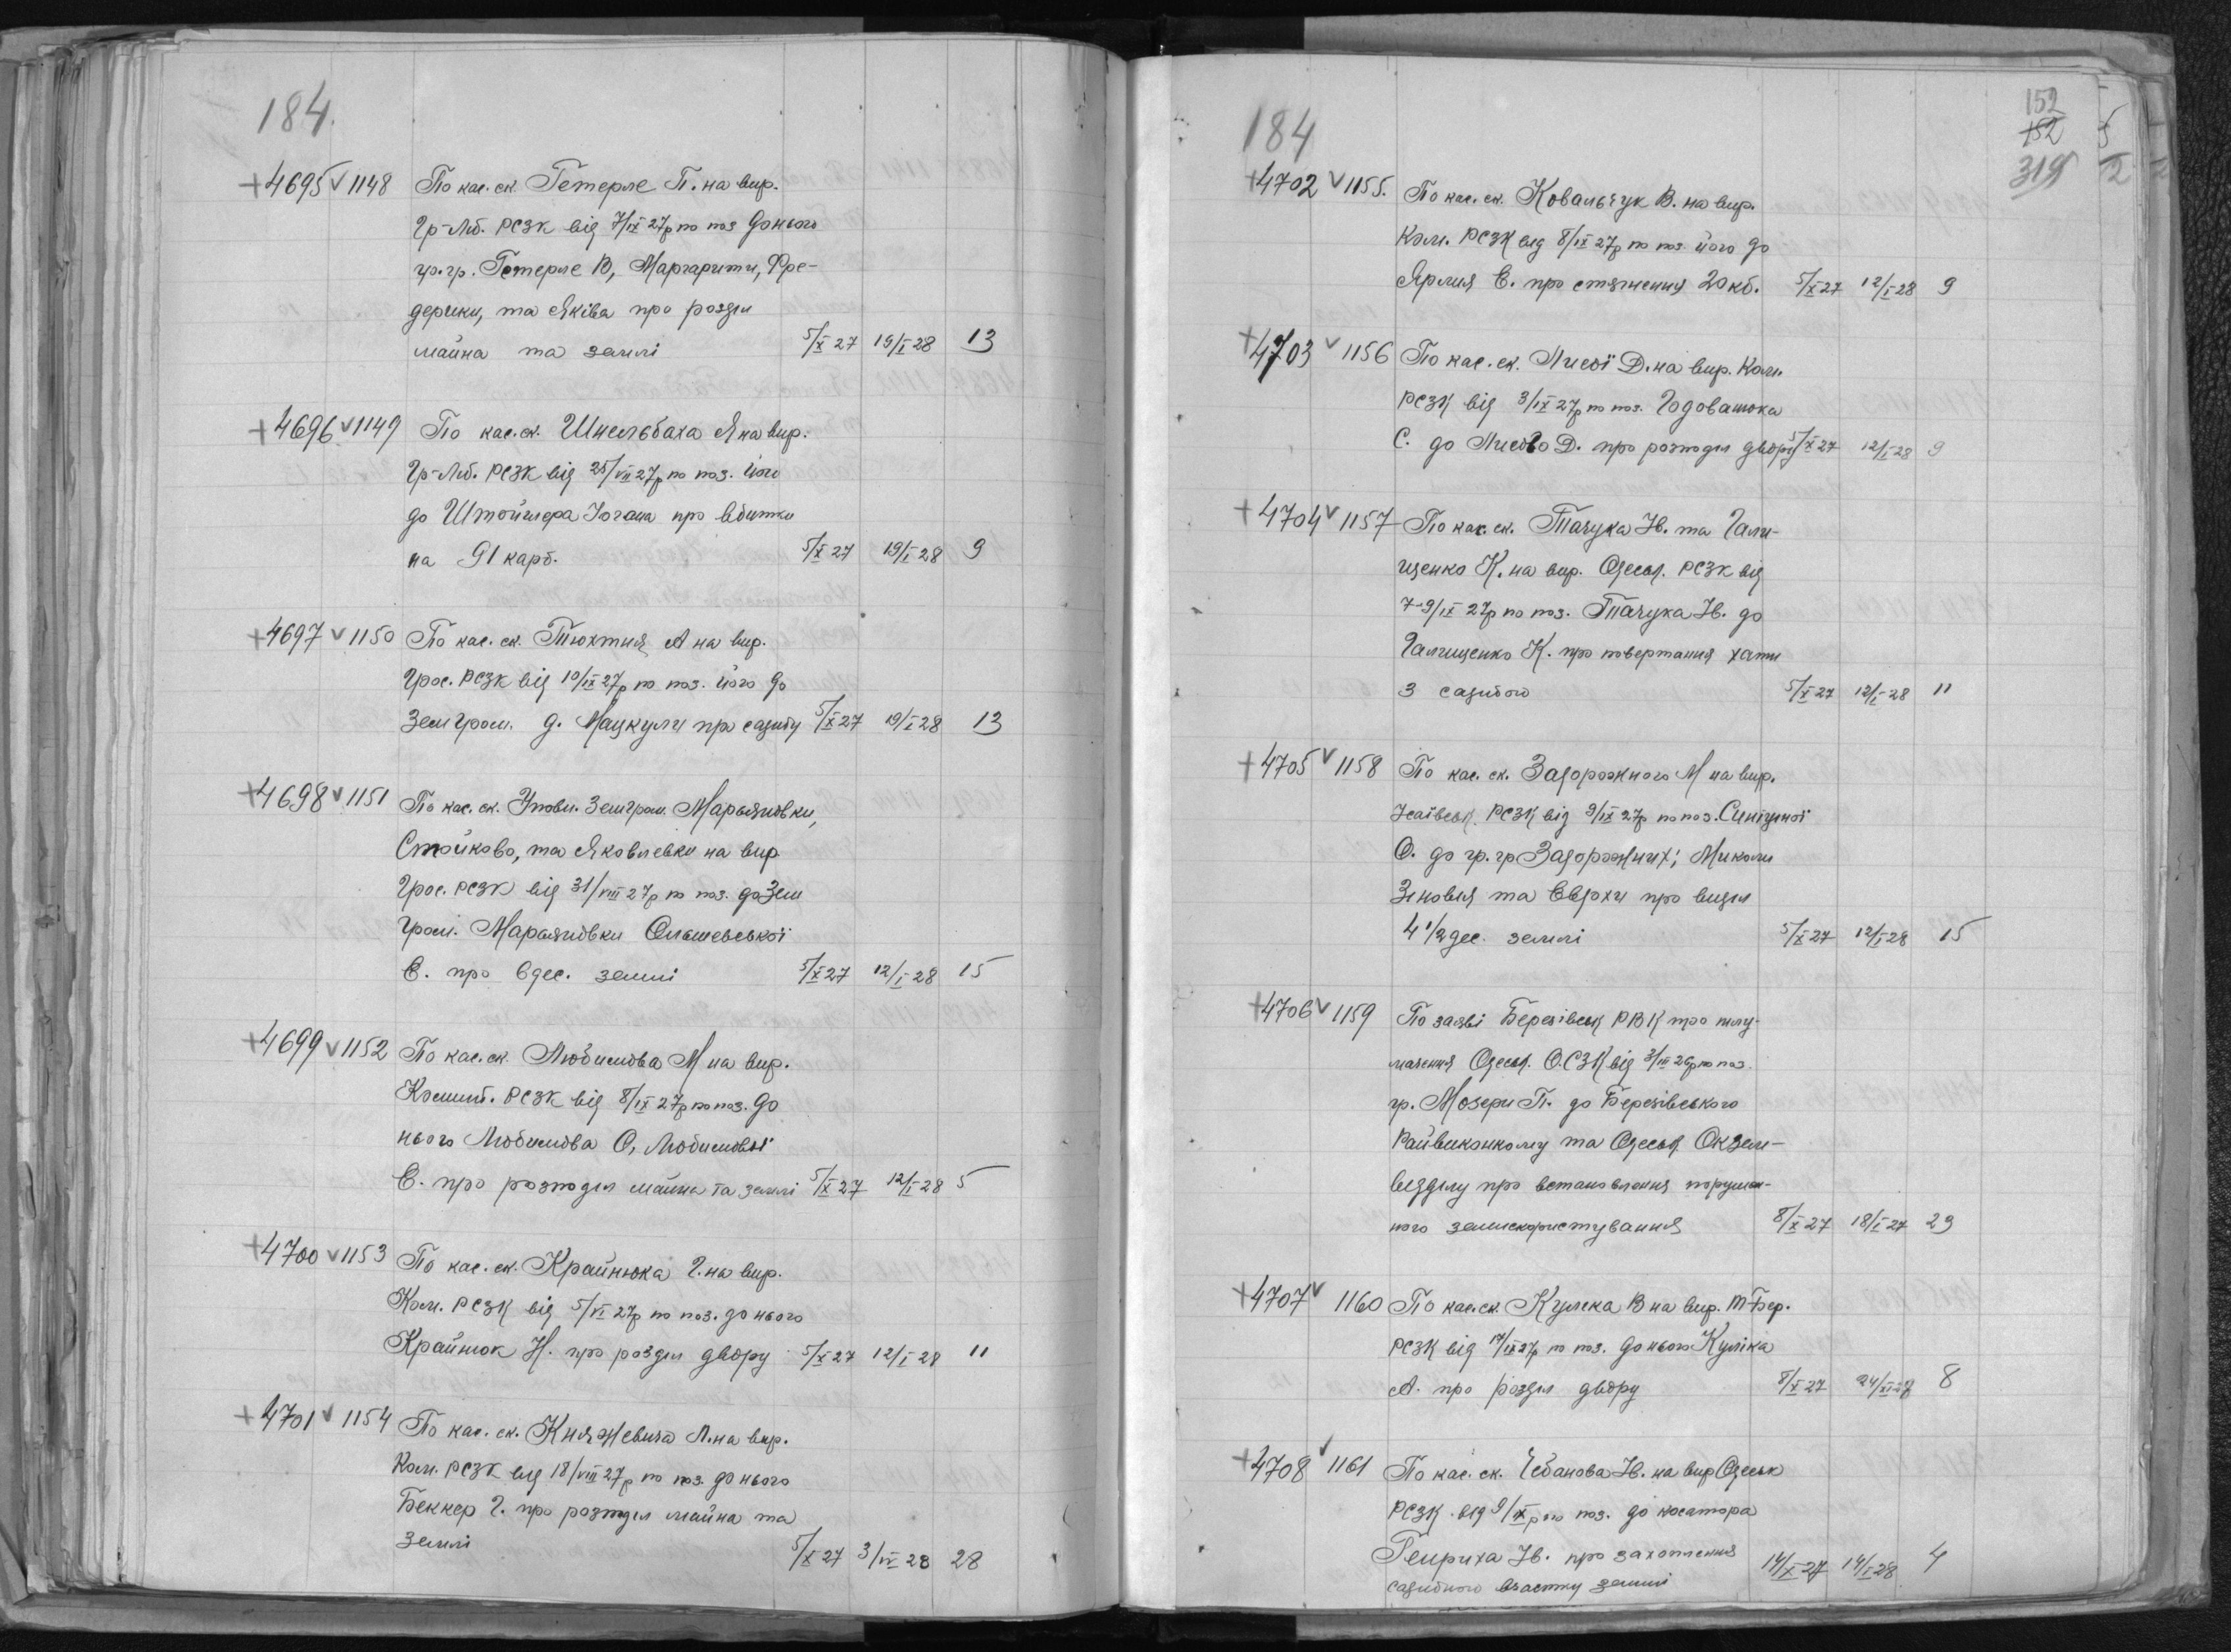 184.
+4695 v 1148 По кас. ск. Гетерле П. на вир.
Гр-Либ. РСЗК від 7/IX 27р по поз до нього
гр.гр. Гетерле В, Маргарити, Фре-
дерики, та Яківа про розділ
майна та землі 5/X 27 19/I 28 13
+4696 v 1149 По кас. ск. Шнельбаха Я на вир.
Гр-Либ. РСЗК від 25/VII 27р по поз. його
до Штойлера Іогана про вбитки
на 91 карб. 5/X 27 19/I 28 9
+4697 v 1150 По кас. ск. Тюхтия А на вир.
Грос. РСЗК від 10/IX 27р по поз. його до
Земгром. д. Мацкули про садибу 5/X 27 19/I 28 13
+4698 v 1151 По кас. ск. Уповн. Земгром. Марьяновки,
Стойково, та Яковлевки на вир
Грос. РСЗК від 31/VIII 27р по поз. до Зем
Гром. Марьяновки Ольшевської
Є. про 6 дес. землі 5/X 27 12/I 28 15
+4699 v 1152 По кас. ск. Любимова М на вир.
Комінт. РСЗК від 8/IX 27р по поз. до
нього Любимова О, Любимової
Є. про розподіл майна та землі 5/X 27 12/I 28 5
+4700 v 1153 По кас. ск. Крайнюка Г. на вир.
Ком. РСЗК від 5/VI 27р по поз. до нього
Крайнюк Н. про розділ двору 5/X 27 12/I 28 11
+4701 v 1154 По кас. ск. Княжевича Л. на вир.
Ком. РСЗК від 18/VIII 27р по поз. до нього
Беккер Г. про розподіл майна та
землі 5/X 27 3/IV 28 28
184
152
152
319
+4702 v 1155. По кас. ск. Ковальчук В. на вир.
Ком. РСЗК від 8/IX 27р по поз. його до
Ярмия Є. про стягнення 20 кб. 5/X 27 12/I 28 9
+4703 v 1156 По кас. ск. Лисої Д. на вир. Ком.
РСЗК від 3/IX 27р по поз. Годованюка
С. до Лисово Д. про розподіл двору 5/X 27 12/I 28 9
+4704 v 1157 По кас. ск. Ткачука Ів. та Гали-
щенко К. на вир. Одеськ. РСЗК від
7-9/IX 27р по поз. Ткачука Ів. до
Галищенко К. про повертання хати
з садибою 5/X 27 12/I 28 11
+4705 v 1158 По кас. ск. Задорожного М на вир.
Ісаївськ. РСЗК від 9/IX 27р по поз. Синіциної
О. до гр.гр Задорожних; Миколи
Зіновія та Євдохи про виділ
4 1/2 дес. землі 5/X 27 12/I 28 15
+4706 v 1159 По заяві Березівськ РВК про тлу-
мачення Одеськ. ОСЗК від 3/III 26р по поз.
гр. Мозери П. до Березівського
Райвиконкому та Одеськ Окзем-
відділу про встановлення порушен-
ного землекористування 8/X 27 18/I 27 23
+4707 v 1160 По кас. ск. Кулика В на вир. Т-Бер.
РСЗК від 17/IX 27р по поз. до нього Куліка
А. про розділ двору 8/X 27 24/XI 27 8
+4708 v 1161 По кас. ск. Чебанова Ів. на вир Одеськ
РСЗК від 9/IX р по поз. до косатора
Генриха Ів. про захоплення
садибного вчастку землі 14/X 27 14/I 28 4